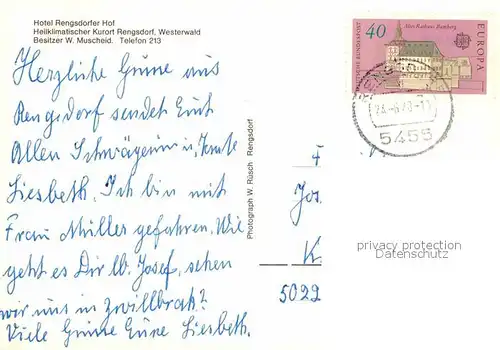 Hotel Rengsdorfer Hof
Heilklimatischer Kurort Rengsdorf, Westerwald
Besitzer W. Muscheid. Telefon 213
Altes Rathaus Bamberg
40
DEUTSCHE BUNDESPOST
EUROPA
5455
Herzliche Grüsse aus
Rengsdorf sendet Euch
Allen Schwägerin u. Tante
Liesbeth. Ich bin mit
Frau Müller gefahren. Wie
geht es Dir lb. Josef, sehen
wir uns in Zwillbrock?
Viele Grüsse Eure Liesbeth.
Photograph W. Rüsch Rengsdorf
Jos.
K
5022
privacy protection
Datenschutz